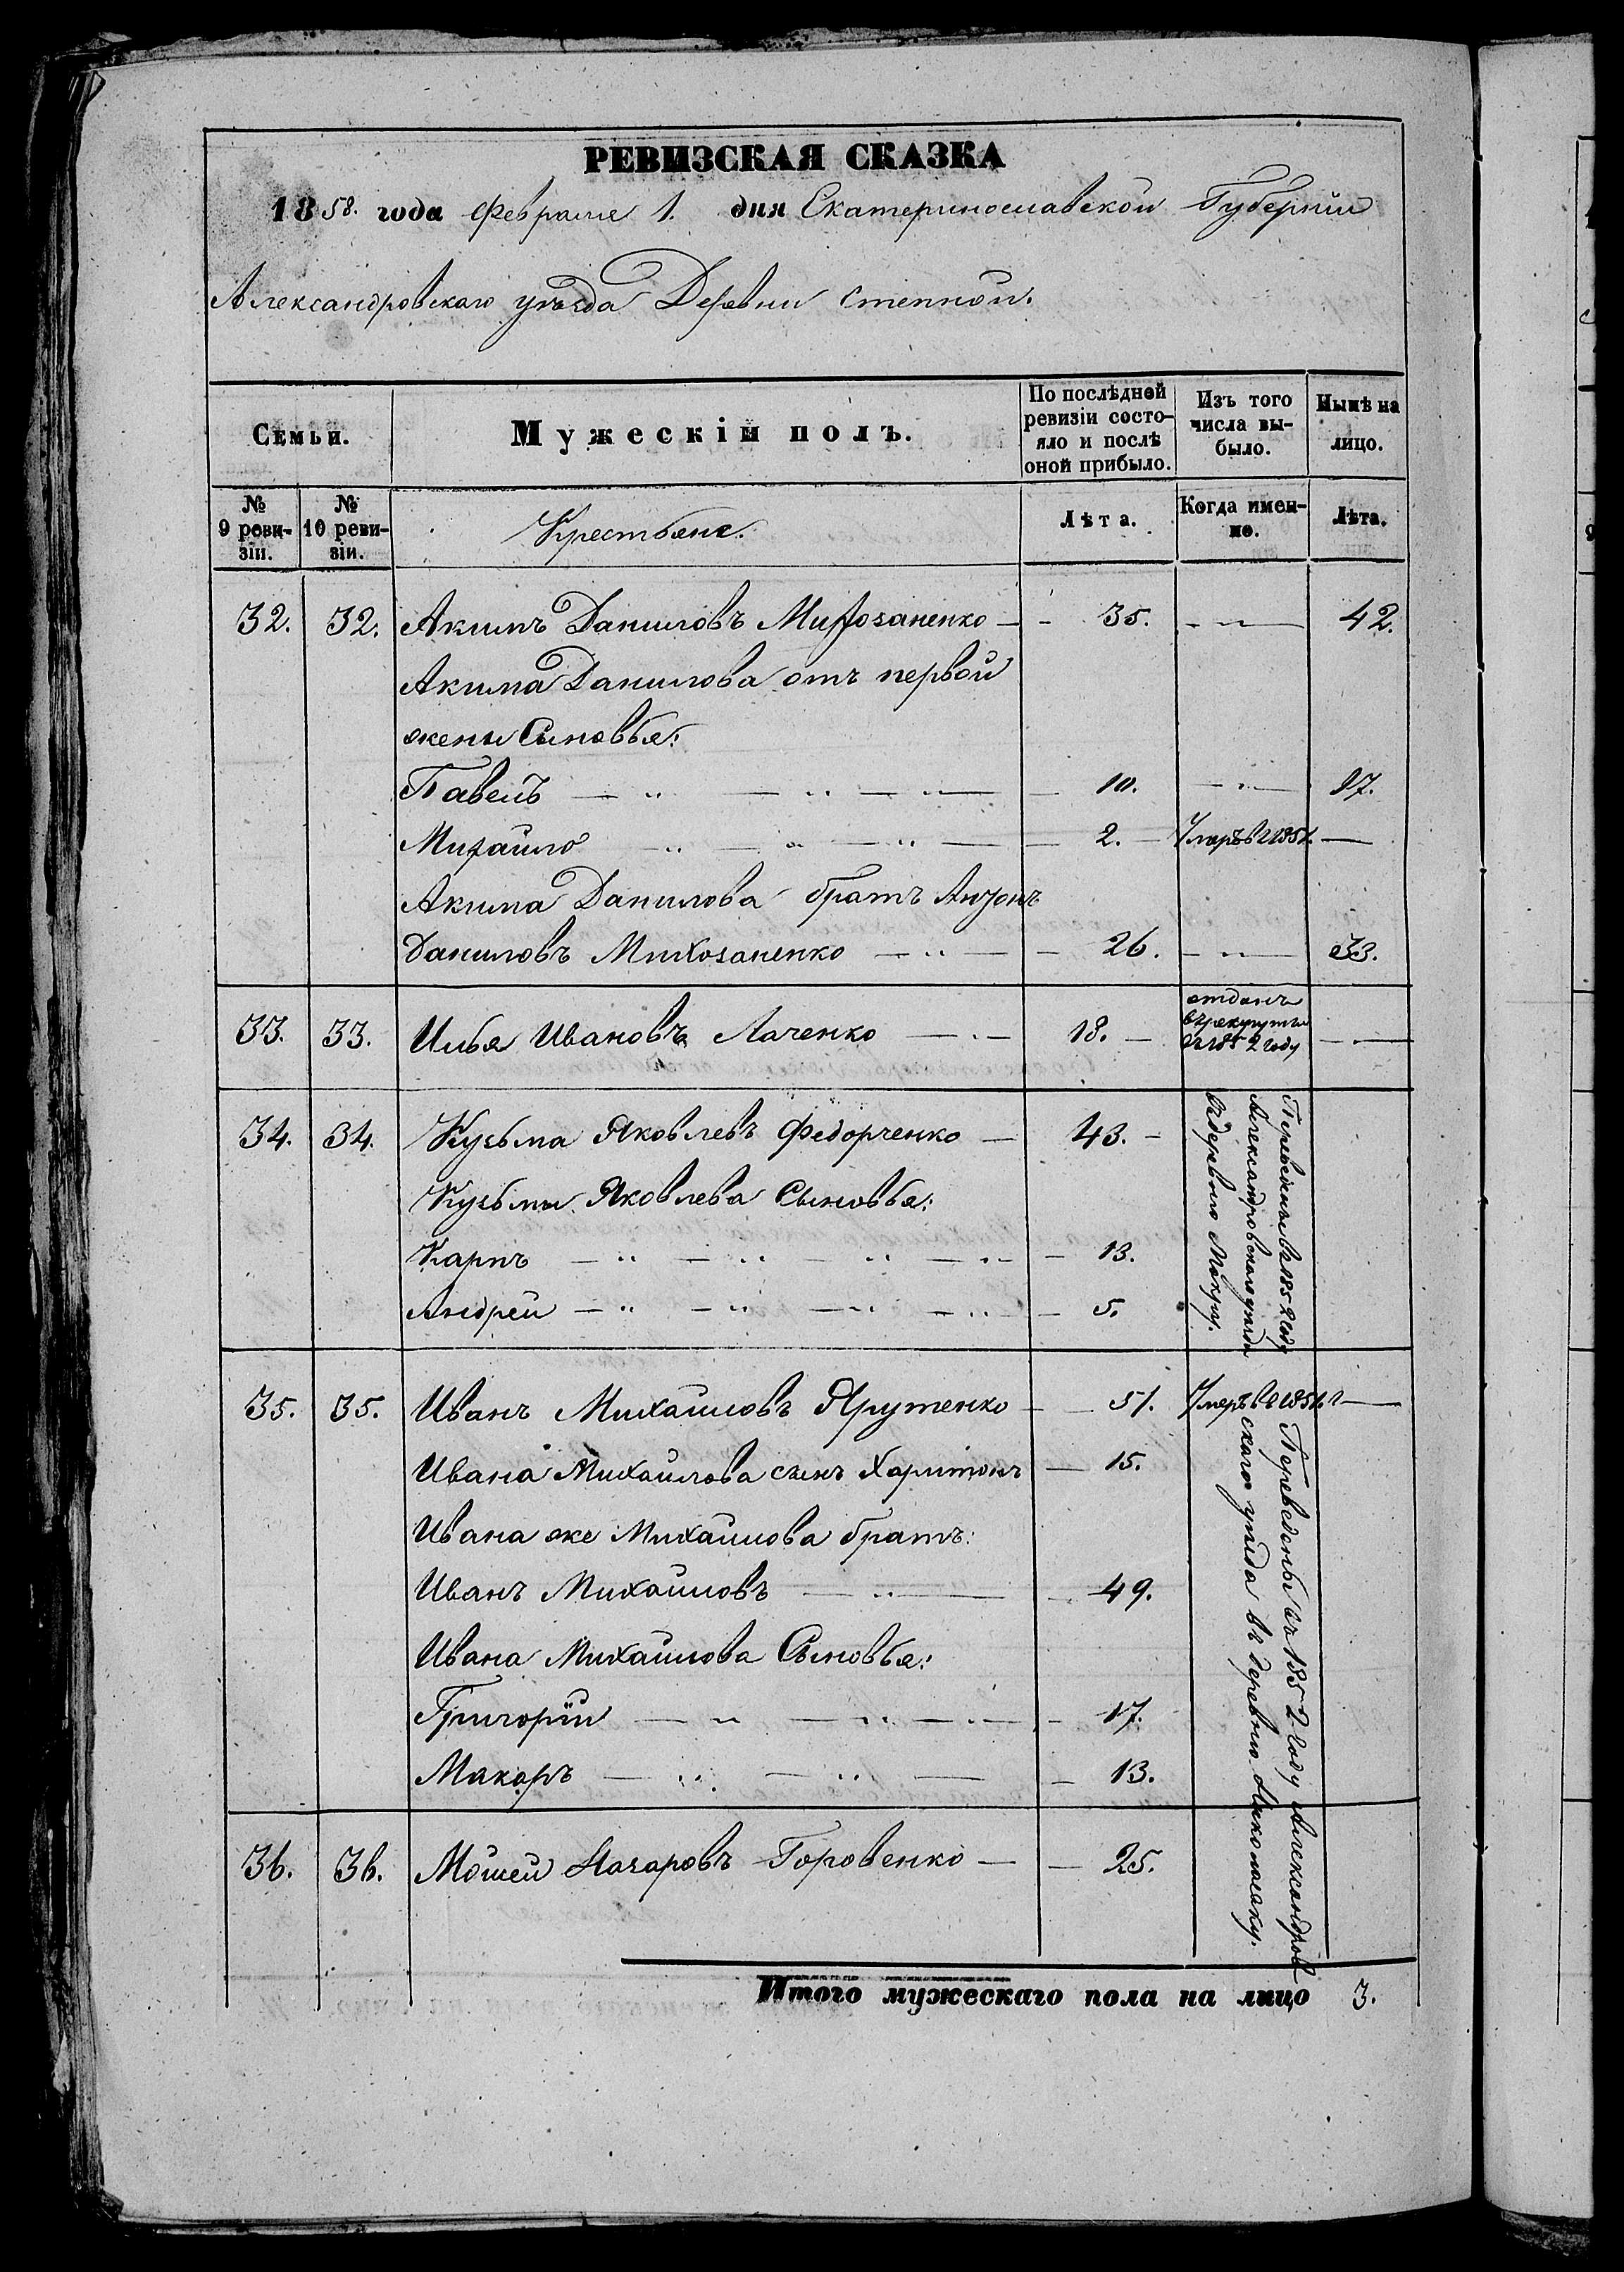 РЕВИЗСКАЯ СКАЗКА
1858. года Февраля 1. дня Екатеринославской Губернии
Александровскаго уѣзда Деревни Степной.
Семьи.
Мужескій полъ.
По послѣдней ревизіи состояло и послѣ оной прибыло.
Изъ того числа выбыло.
Нынѣ на лицо.
№ 9 ревизіи.
№ 10 ревизіи.
Крестьяне.
Лѣта.
Когда именно.
Лѣта.
32. 32. Акимъ Даниловъ — 35. — " — 42.
Акима Данилова отъ первой
жены Сыновья:
Павелъ — " — " — " — 10. — " — 17.
Михайло — " — " — " — 2. — Умеръ в 1851. —
Акима Данилова братъ Антонъ
Даниловъ — " — 26. — " — 33.
33. 33. Илья Ивановъ Лаченко — " — 18. — отданъ
въ рекруты
въ 1852 году — " —
34. 34. Кузьма Яковлевъ Федорченко — 43. —
Кузьмы Яковлева Сыновья:
Карпъ — " — " — " — " — 13.
Андрей — " — " — " — " — 5.
Переведены въ 1852 году
Александровскаго уѣзда
въ деревню Мокрую.
35. 35. Иванъ Михайловъ Ярутенко — 51. Умеръ въ 1851 г —
Ивана Михайлова сынъ Харитонъ — 15.
Ивана же Михайлова братъ:
Иванъ Михайловъ — " — 49.
Ивана Михайлова Сыновья:
Григорій — " — " — " — 17.
Макаръ — " — " — 13.
36. 36. Мойсей Назаровъ Горовенко — 25.
Переведены въ 1852 году Александров
скаго уѣзда въ деревню
Итого мужескаго пола на лицо 3.